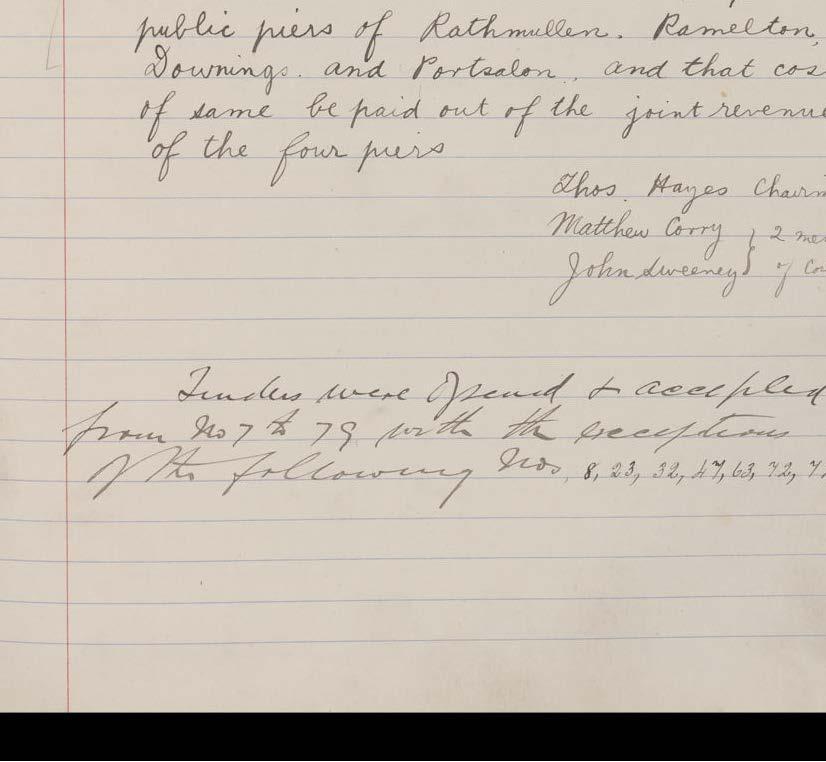 public piers of Rathmullen. Ramelton,
Downings. and Portsalon, and that cos
of same be paid out of the joint revenue
of the four piers
Thos. Hayes Chairm
Matthew Corry } 2 mem
John Sweeney } of Cou
Tenders were opened & accepted
from No 7 to 79 with the exceptions
of the following Nos, 8, 23, 32, 47, 63, 72, 7